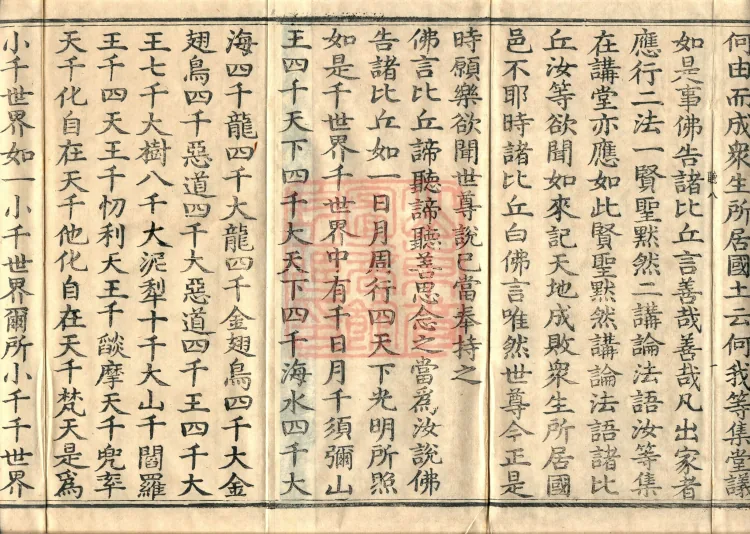 何由而成衆生所居國土云何我等集堂議
如是事佛告諸比丘言善哉善哉凡出家者
應行二法一賢聖默然二講論法語汝等集
在講堂亦應如此賢聖默然講論法語諸比
丘汝等欲聞如來記天地成敗衆生所居國
邑不耶時諸比丘白佛言唯然世尊今正是
時願樂欲聞世尊說已當奉持之
佛言比丘諦聽諦聽善思念之當爲汝說佛
告諸比丘如一日月周行四天下光明所照
如是千世界千世界中有千日月千須彌山
王四千天下四千大天下四千海水四千大
海四千龍四千大龍四千金翅鳥四千大金
翅鳥四千惡道四千大惡道四千王四千大
王七千大樹八千大泥犁十千大山千閻羅
王千四天王千忉利天王千𦦨摩天千兜率
天千化自在天千他化自在天千梵天是爲
小千世界如一小千世界爾所小千千世界